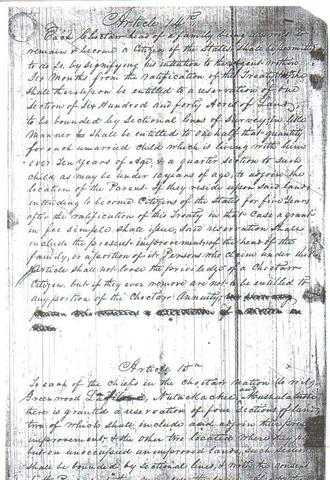 Article 14th
Each Choctaw head of a family being desirous to
remain & become a Citizen of the States, shall be permitted
to do so, by signifying his intention to the Agent within
Six Months from the ratification of this Treaty, & he
shall thereupon be entitled to a reservation of one
Section of Six Hundred and forty Acres of Land,
to be bounded by Sectional lines of Survey; in like
manner he shall be entitled to one half that quantity
for each unmarried child which is living with him
over Ten Years of Age, & a quarter section to such
child as may be under 10 years of age, to adjoin the
location of the Parent. If they reside upon said lands
intending to become Citizens of the States for five Years
after the ratification of this Treaty in that case a grant
in fee simple shall issue, said reservation shall
include the present improvement of the head of the
family, or a portion of it. Persons who claim under this
Article shall not loose the priviledge of a Choctaw
Citizen, but if they ever remove are not to be entitled to
any portion of the Choctaw Annuity,
Article 15th
To each of the Chiefs in the Choctaw nation to wit,
Greenwood Laflore, Nutackachie, and Mushulatubbe
there is granted a reservation of four Sections of land
two of which shall include and adjoin their present
improvement, & the other two located where they please
but on unoccupied unimproved lands, such Sections
shall be bounded by sectional lines, & with the consent